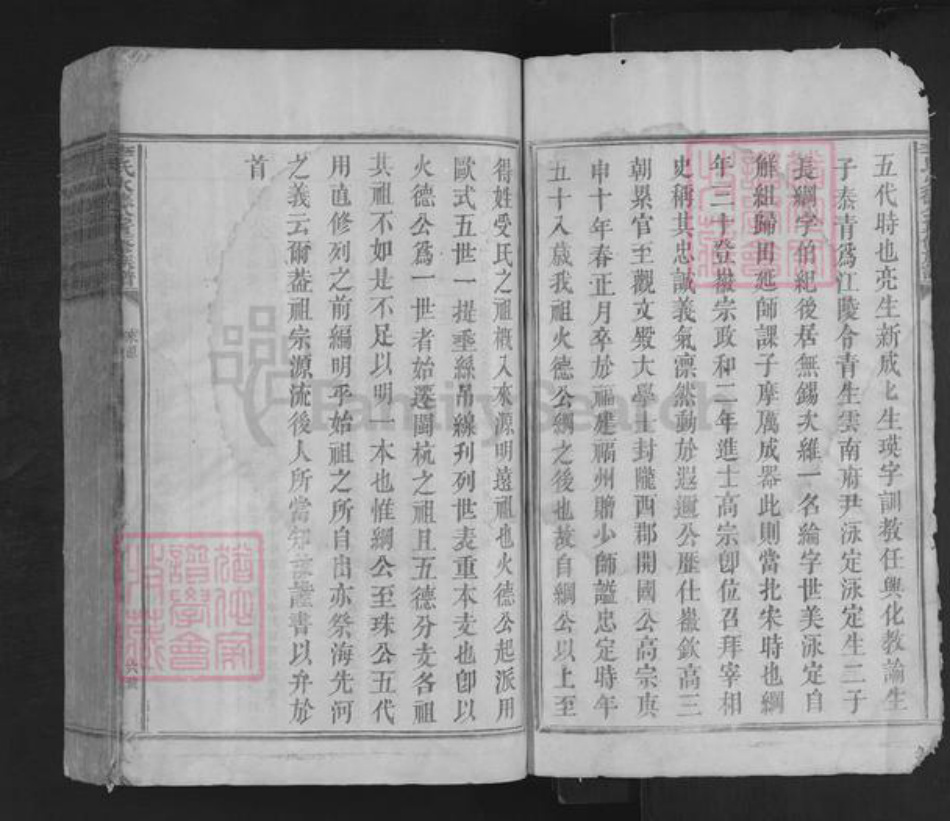 五代時也亮生新成七生瑛字訓教任興化教諭生
子泰青為江陵令青生雲南府尹泳定泳定生二子
長綱字伯紀後居無錫次維一名綸字世美泳定自
解組歸田延師課子摩厲成器此則當北宋時也綱
年三十登徽宗政和二年進士高宗卽位召拜宰相
史稱其忠誠義氣凛然動於遐邇公歷仕徽欽高三
朝累官至觀文殿大學士封隴西郡開國公高宗庚
申十年春正月卒於福建福州贈少師謚忠定時年
五十八歲我祖火德公綱之後也茲自綱公以上至
得姓受氏之祖槪入來源明遠祖也火德公起派用
歐式五世一提垂絲吊線刋列世表重本支也卽以
火德公爲一世者始遷閩杭之祖且五德分支各祖
共祖不如是不足以明一本也惟綱公至珠公五代
用直修列之前編明乎始祖之所自出亦祭海先河
之義云爾葢祖宗源流後人所當知謹書以弁於
首
FamilySearch